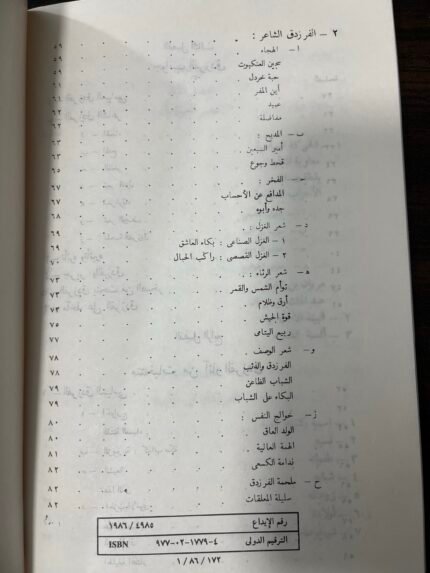 ٢ – الفرزدق الشاعر :
ا – الهجاء . . . . . . ٥٦
سجين العنكبوت . . . . . ٥٩
حبة خردل . . . . . ٥٩
أين المفر . . . . .
عبيد . . . . .
مفاضلة . . . . . ٦٢
ب – المديح : . . . . . ٦٣
أمير السبعين . . . . . ٦٣
قحط وجوع . . . . . ٦٥
ح – الفخر : . . . . . ٦٧
المدافع عن الأحساب . . . . ٦٧
جده وأبوه . . . . . ٦٨
د – شعر الغزل : . . . . . ٦٩
١ – الغزل الصناعى : بكاء العاشق . . . ٦٩
٢ – الغزل القصصى : راكب الحبال . . .
ه – شعر الرثاء : . . . . . ٧٣
توأم الشمس والقمر . . . . ٧٣
أرق وظلام . . . . . ٧٣
قوة الجيش . . . . . ٧٥
ربيع اليتامى . . . . . ٧٧
و – شعر الوصف . . . . . ٧٨
الفرزدق والذئب . . . . . ٧٨
الشباب الظاعن . . . . . ٧٩
البكاء على الشباب . . . . ٧٩
ز – خوالج النفس : . . . . . ٨٠
الولد العاق . . . . . ٨٠
الهمة العالية . . . . . ٨١
ندامة الكسعى . . . . . ٨٢
ح – ملحمة الفرزدق . . . . . ٨٢
سليلة المعلقات . . . . . ٨٢
رقم الإيداع ١٩٨٦/٤٩٨٥
الترقيم الدولى ISBN ٩٧٧–٠٢–١٧٧٩–٤
١/٨٦/١٧٢